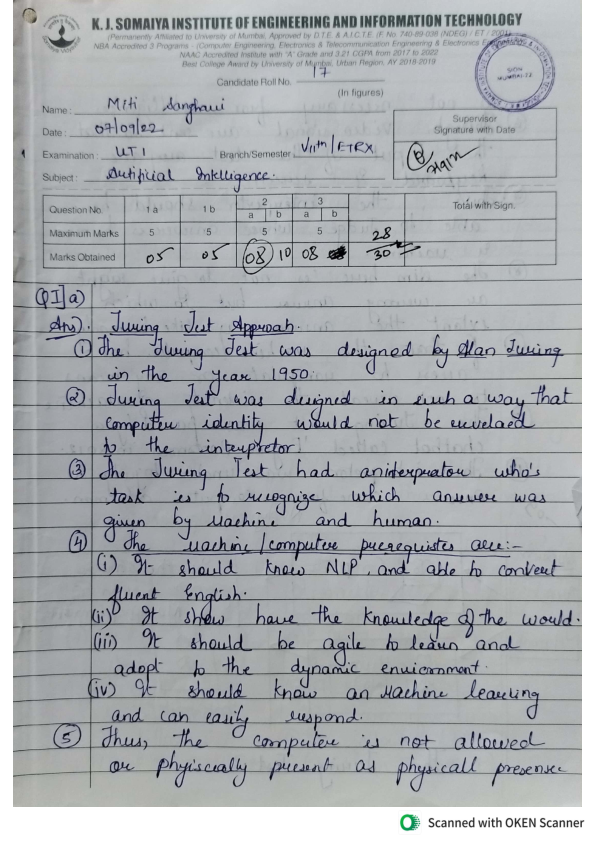 K. J. SOMAIYA INSTITUTE OF ENGINEERING AND INFORMATION TECHNOLOGY
(Permanently Affiliated to University of Mumbai, Approved by D.T.E. & A.I.C.T.E. (F. No. 740-89-036 (NDEG) / ET / 2001)
NBA Accredited 3 Programs - (Computer Engineering, Electronics & Telecommunication Engineering & Electronics
NAAC Accredited Institute with "A" Grade and 3.21 CGPA from 2017 to 2022
Best College Award by University of Mumbai, Urban Region, AY 2018-2019
Candidate Roll No. 17
(In figures)
Name : Miti Sanghavi
Date : 07/09/22
Examination : UT 1 Branch/Semester : VIIth / ETRX
Subject : Artificial Intelligence.
Supervisor
Signature with Date
Question No. 1 a 1 b 2 3 Total with Sign.
a b a b
Maximum Marks 5 5 5 5
Marks Obtained 05 05 08 10 08 28/30
Q1] a)
Ans). Turing Test Approah.
① The Turing Test was designed by Alan Turing
in the year 1950.
② Turing Test was designed in such a way that
computer identity would not be
to the interpretor
③ The Turing Test had who's
task is to recognize which answer was
given by Machine and human.
④ The Machine / computer are:-
(i) It should know NLP, and able to convert
fluent English.
(ii) It have the knowledge of the would.
(iii) It should be agile to learn and
adopt to the dynamic
(iv) It should know an Machine learning
and can easily respond.
⑤ Thus, the computer is not allowed
or present as physicall
Scanned with OKEN Scanner